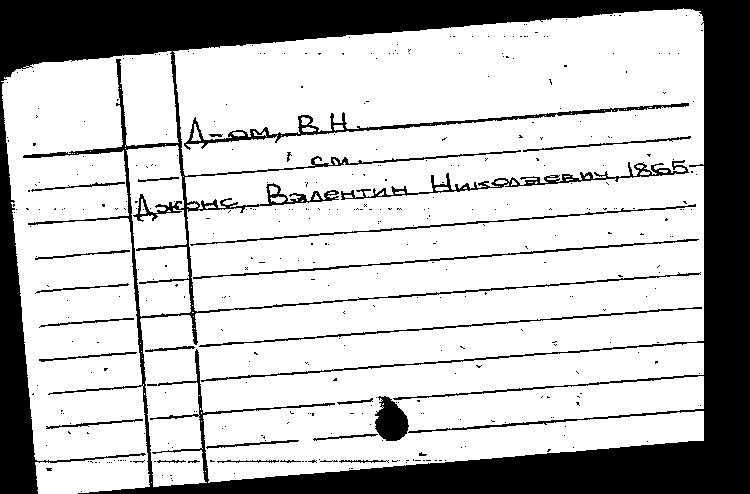 Д-ом, В.Н.
см.
Джонс, Валентин Николаевич, 1865-